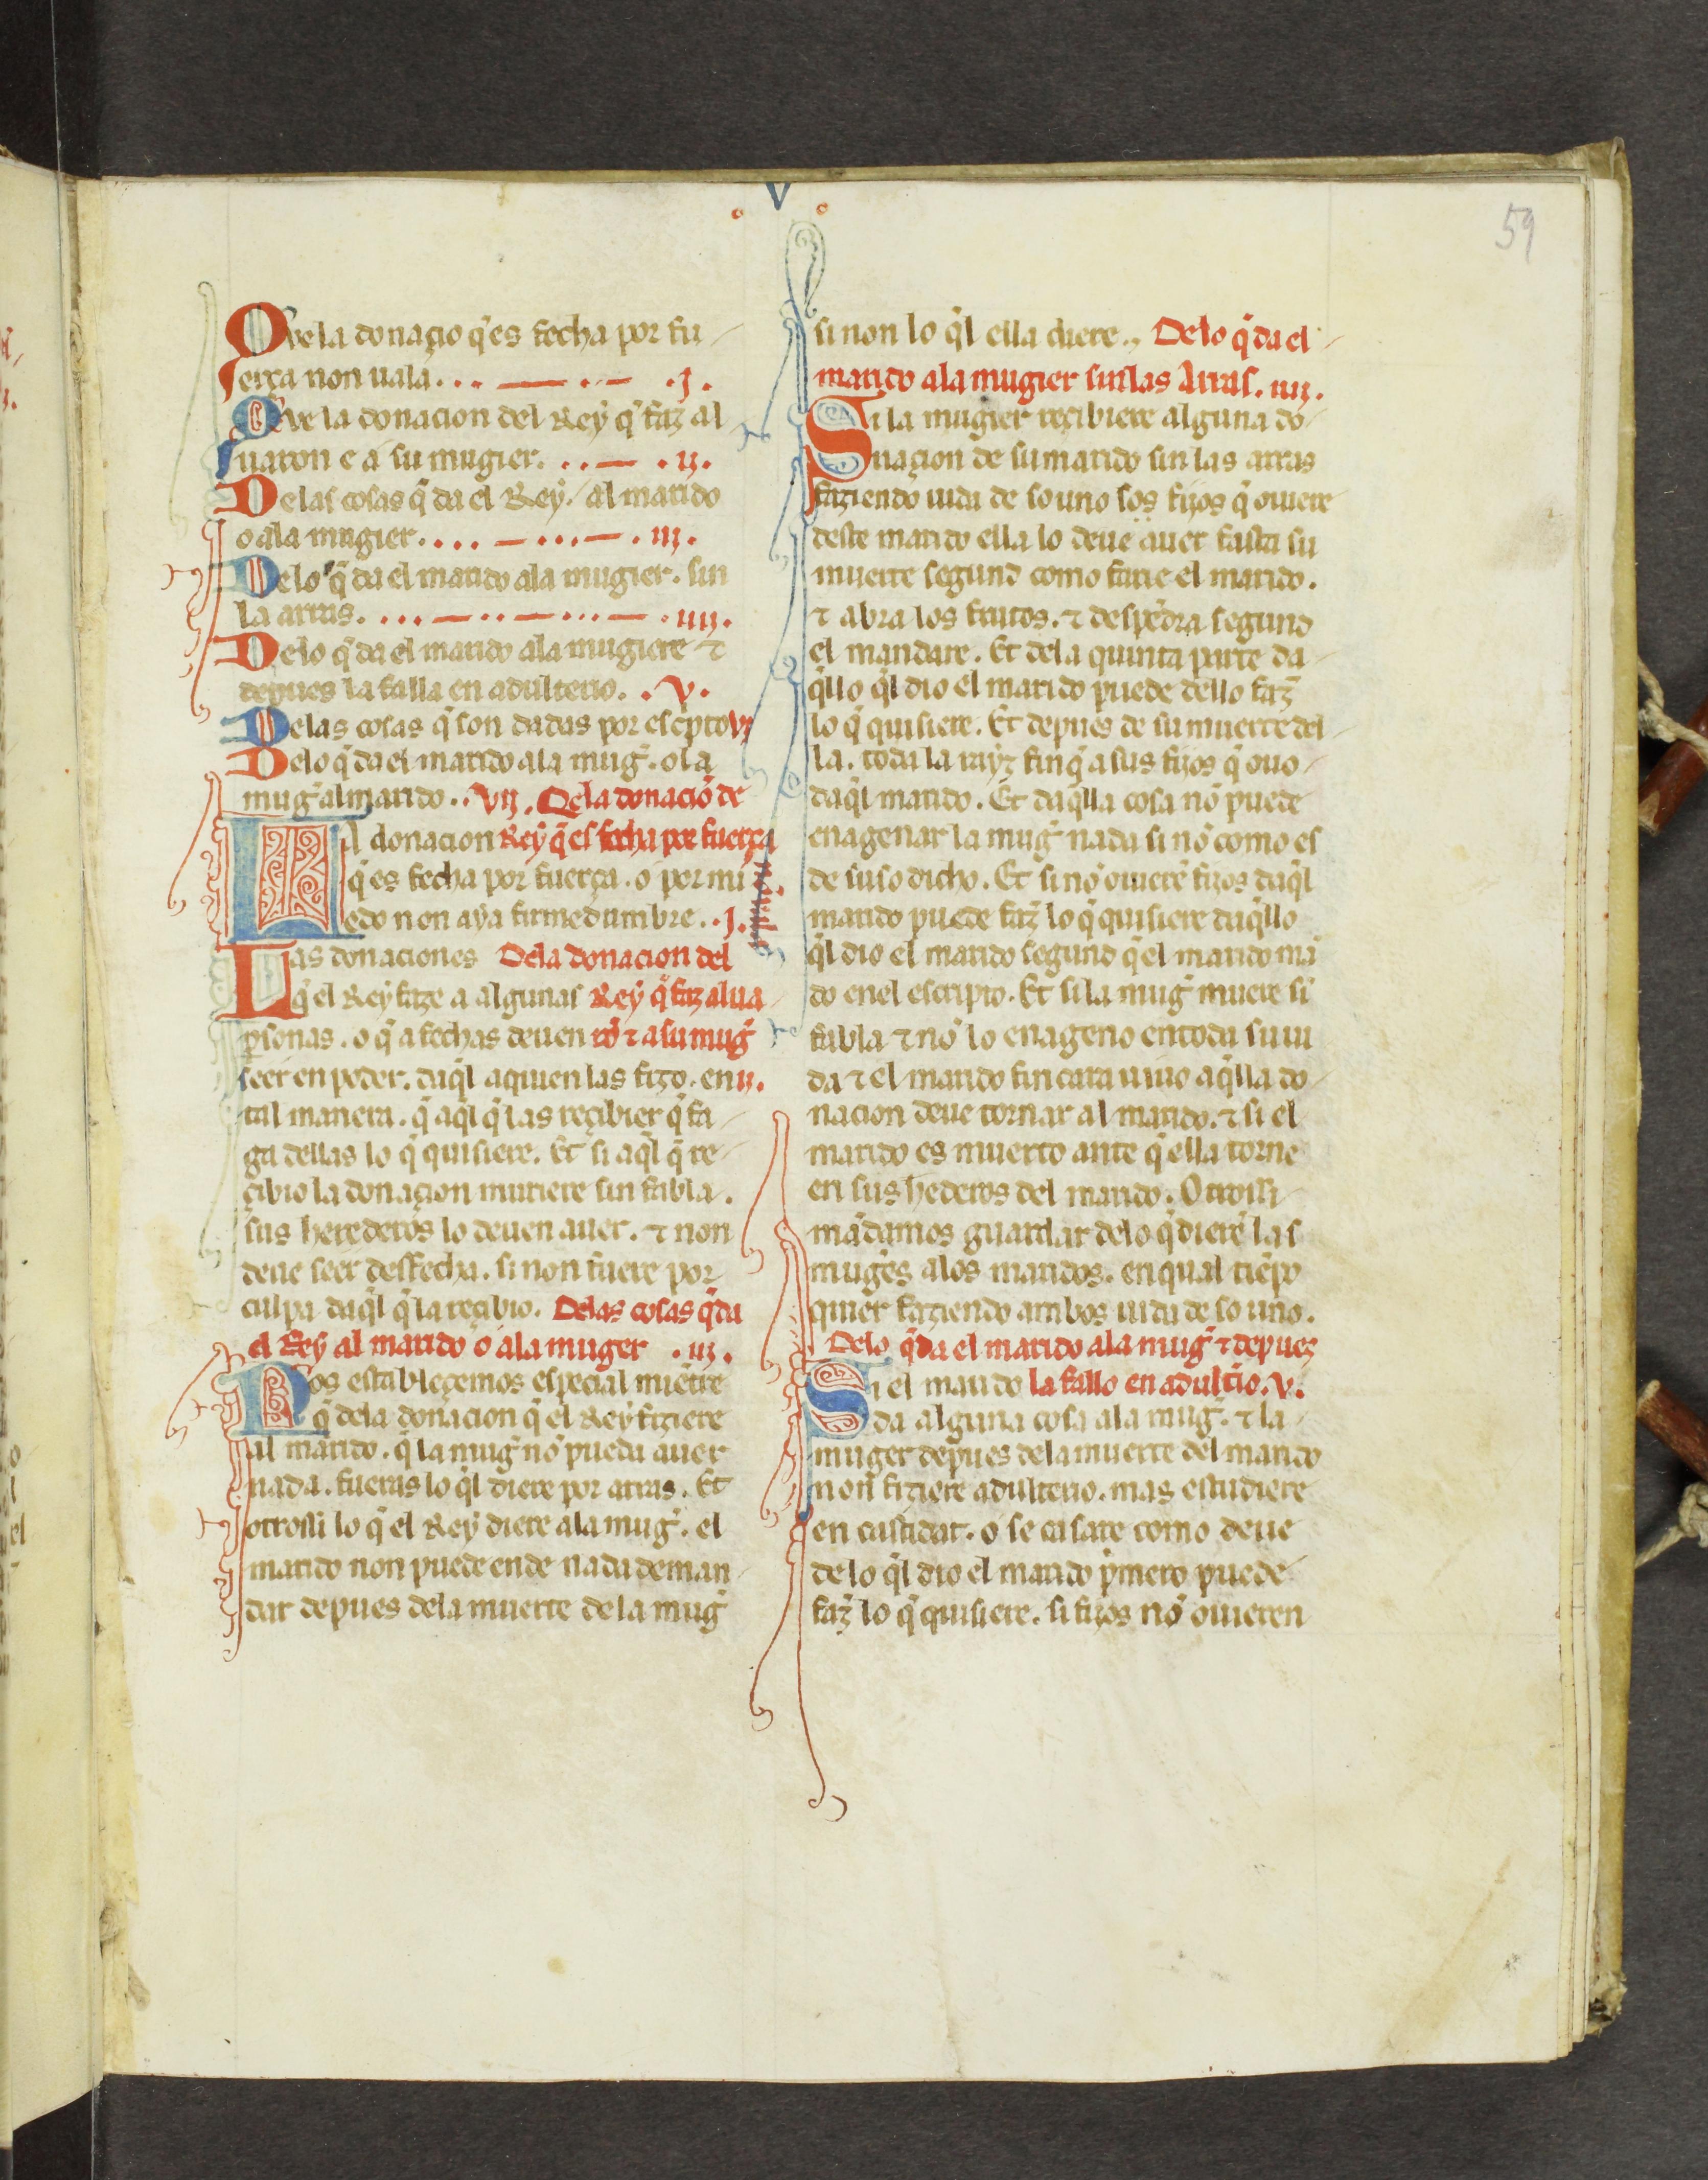 V
59
Que la donaçio q̃ es fecha por fu
erça non uala. .j.
Que la donacion del Rey q̃ faz al
uaron e a su mugier. .ij.
Delas cosas q̃ da el Rey al marido
o ala mugier. .iij.
Delo q̃ da el marido ala mugier. sin
la arras. .iiij.
Delo q̃ da el marido ala mugiere ⁊
depues la falla en adulterio. .v.
Delas cosas q̃ son dadas por escp̃to vj
Delo q̃ da el marido ala mug̃. o la
mug̃ al marido. .vij. Dela donació de
LA donacion Rey q̃ es fecha por fuerça
q̃ es fecha por fuerça. o por mi
edo non aya firmedumbre. .j.
Las donaciones Dela donacion del
q̃ el Rey faze a algunas Rey q̃ faz al ua
p̃sonas. o q̃ a fechas deuen rõ ⁊ a su mug̃
seer en poder. daq̃l aquien las fizo. en ij.
tal manera. q̃ aq̃l q̃ las reçibier q̃ fa
ga dellas lo q̃ quisiere. Et si aq̃l q̃ re
çibio la donaçion muriere sin fabla.
sus herederos lo deuen auer. ⁊ non
deue seer desfecha. si non fuere por
culpa daq̃l q̃ la reçibio. Delas cosas q̃ da
el Rey al marido o ala muger .iij.
Nos estableçemos espeçial miẽtre
q̃ dela donacion q̃ el Rey fiziere
al marido. q̃ la mug̃ nõ pueda auer
nada. fueras lo q̃l diere por arras. Et
otrossi lo q̃ el Rey diere ala mug̃. el
marido non puede ende nada deman
dar depues dela muerte dela mug̃
si non lo q̃l ella diere. Delo q̃ da el
marido ala mugier sin las Arras. iiij.
Si la mugier reçibiere alguna do
naçion de su marido sin las arras
faziendo uida de so uno sos fijos q̃ ouiere
deste marido ella lo deue auer fasta su
muerte segund como farie el marido.
⁊ abra los frutos. ⁊ despẽdra segund
el mandare. Et dela quinta parte da
q̃llo q̃l dio el marido puede dello faz̃
lo q̃ quisiere. Et depues de su muerte del
la. toda la rayz finq̃ a sus fijos q̃ ouo
daq̃l marido. Et daq̃lla cosa nõ puede
enagenar la mug̃ nada si nõ como es
de suso dicho. Et si nõ ouierẽ fijos daq̃l
marido puede faz̃ lo q̃ quisiere daq̃llo
q̃l dio el marido segund q̃ el marido mã
do enel escripto. Et si la mug̃ muere sĩ
fabla ⁊ nõ lo enageno en toda su ui
da ⁊ el marido fincara uiuo aq̃lla do
nacion deue tornar al marido. ⁊ si el
marido es muerto ante q̃ ella torne
en sus hederos del marido. Otrossi
mãdamos guardar delo q̃ dierẽ las
mugẽs alos maridos. en qual tiẽpo
quier faziendo ambos uida de so uno.
Delo q̃ da el marido ala mug̃ ⁊ depuez
Si el marido la fallo en adult̃io. v.
da alguna cosa ala mug̃. ⁊ la
muger depues dela muerte del marido
non fiziere adulterio. mas estudiere
en castidat. o se casare como deue
delo q̃l dio el marido p̃mero puede
faz̃ lo q̃ quisiere. si fijos nõ ouieren